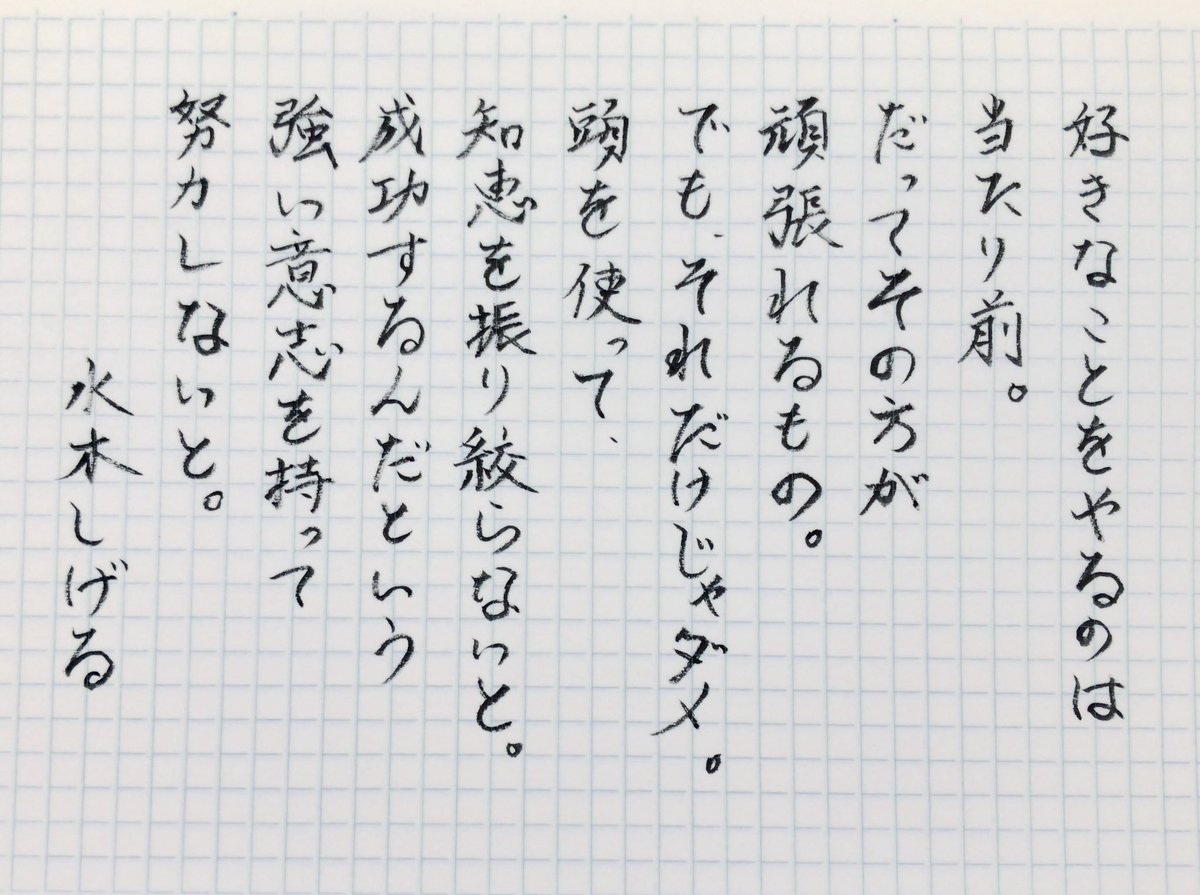 好きなことをやるのは
当たり前。
だってその方が
頑張れるもの。
でも、それだけじゃダメ。
頭を使って、
知恵を振り絞らないと。
成功するんだという
強い意志を持って
努力しないと。
水木しげる